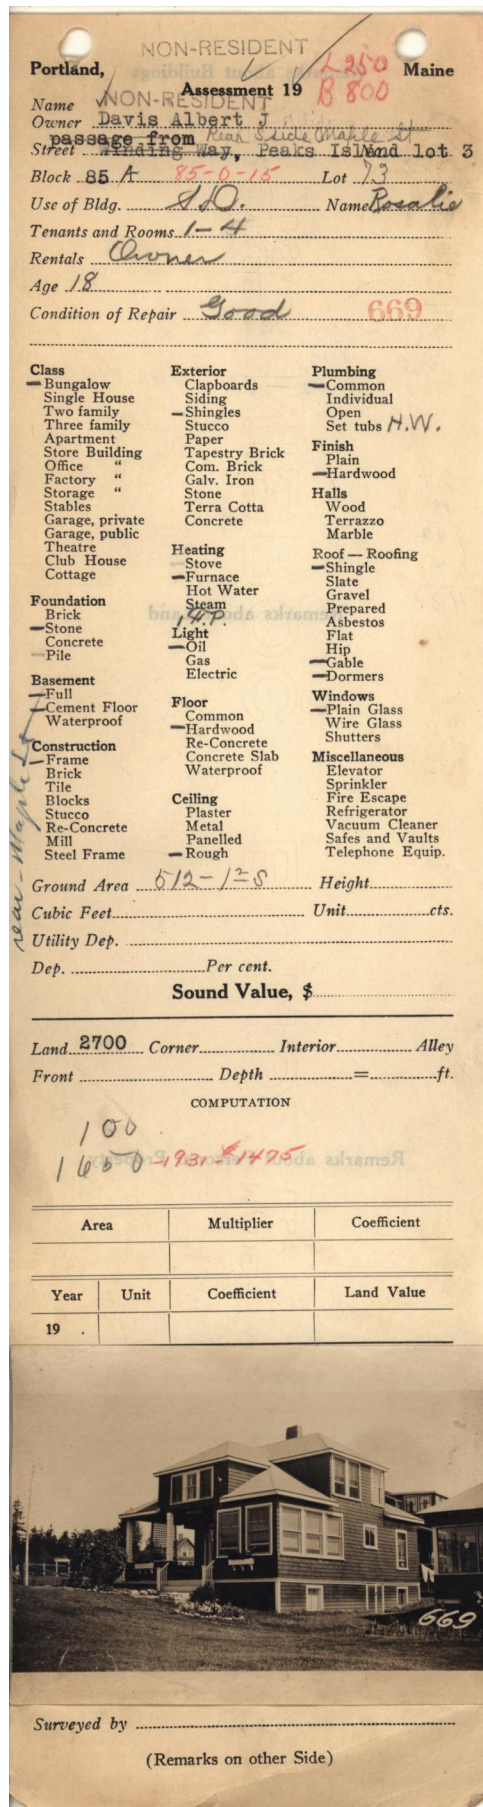 NON-RESIDENT
L 250
Portland, Maine
Assessment 19
B 800
NON-RESIDENT
Name
Owner Davis Albert J
passage from Rear S side Maple St
Street Winding Way, Peaks Island lot 3
Block 85 A 85-O-15 Lot 73
Use of Bldg. S.D. Name Rosalie
Tenants and Rooms 1-4
Rentals Owner
Age 18
Condition of Repair Good 669
Class
Bungalow
Single House
Two family
Three family
Apartment
Store Building
Office "
Factory "
Storage "
Stables
Garage, private
Garage, public
Theatre
Club House
Cottage
Foundation
Brick
Stone
Concrete
Pile
Basement
Full
Cement Floor
Waterproof
Construction
Frame
Brick
Tile
Blocks
Stucco
Re-Concrete
Mill
Steel Frame
rear - Maple St
Exterior
Clapboards
Siding
Shingles
Stucco
Paper
Tapestry Brick
Com. Brick
Galv. Iron
Stone
Terra Cotta
Concrete
Heating
Stove
Furnace
Hot Water
Steam
1 F.P.
Light
Oil
Gas
Electric
Floor
Common
Hardwood
Re-Concrete
Concrete Slab
Waterproof
Ceiling
Plaster
Metal
Panelled
Rough
Plumbing
Common
Individual
Open
Set tubs H.W.
Finish
Plain
Hardwood
Halls
Wood
Terrazzo
Marble
Roof — Roofing
Shingle
Slate
Gravel
Prepared
Asbestos
Flat
Hip
Gable
Dormers
Windows
Plain Glass
Wire Glass
Shutters
Miscellaneous
Elevator
Sprinkler
Fire Escape
Refrigerator
Vacuum Cleaner
Safes and Vaults
Telephone Equip.
Ground Area 512 - 1½ S Height
Cubic Feet Unit cts.
Utility Dep.
Dep. Per cent.
Sound Value, $
Land 2700 Corner Interior Alley
Front Depth = ft.
COMPUTATION
100
1650 -1931-$1475
Area Multiplier Coefficient
Year Unit Coefficient Land Value
19 .
669
Surveyed by
(Remarks on other Side)